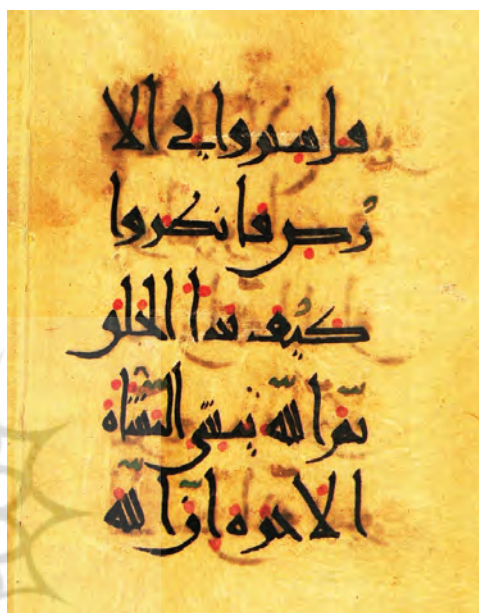 قل سيروا في الا
رض فانظروا
كيف بدا الخلق
ثم الله ينشئ النشاة
الاخرة ان الله